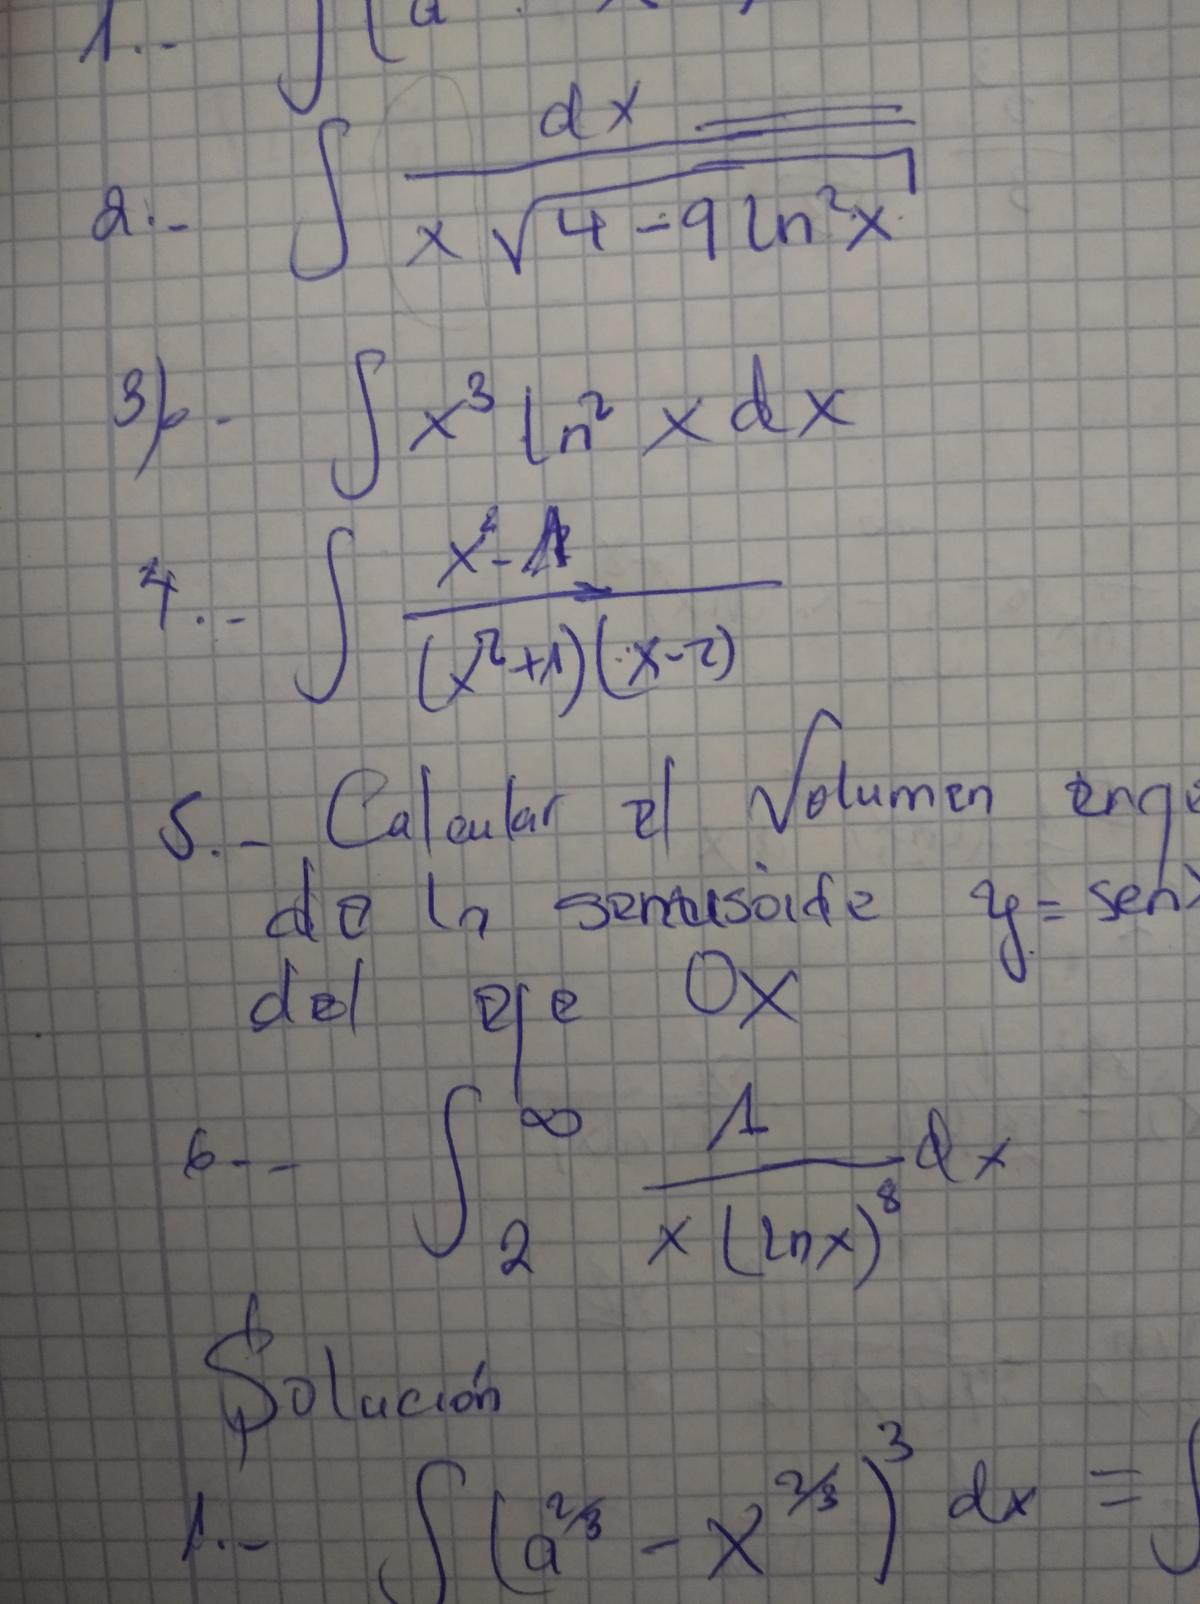 1.- ∫ (a
2.- ∫ dx / (x √(4-9 ln²x))
3).- ∫ x³ ln² x dx
4.- ∫ (x²-1) / ((x²+1)(x-2))
5.- Calcular el Volumen eng
de la senusoide y = sen
del eje OX
6.- ∫₂^∞ 1 / (x (lnx)⁸) dx
Solución
1.- ∫ (a^(2/3) - x^(2/3))³ dx = ∫